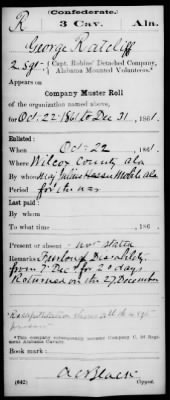 (Confederate.)
R 3 Cav. Ala.
George Ratcliff
2 Sgt, Capt. Robins' Detached Company,
Alabama Mounted Volunteers.*
Appears on
Company Muster Roll
of the organization named above,
for Oct 22 1861 to Dec 31, 1861.
Enlisted:
When Oct 22, 1861.
Where Wilcox County Ala
By whom Maj Mobile Ala
Period for the war
Last paid:
By whom
To what time , 186 .
Present or absent not stated
Remarks: Furlough Disability
from 7 Dec for 20 days
Returned on the 27 December
*This company subsequently became Company C, 3d Regiment
Alabama Cavalry.
Book mark:
A C Black
(642) Copyist.